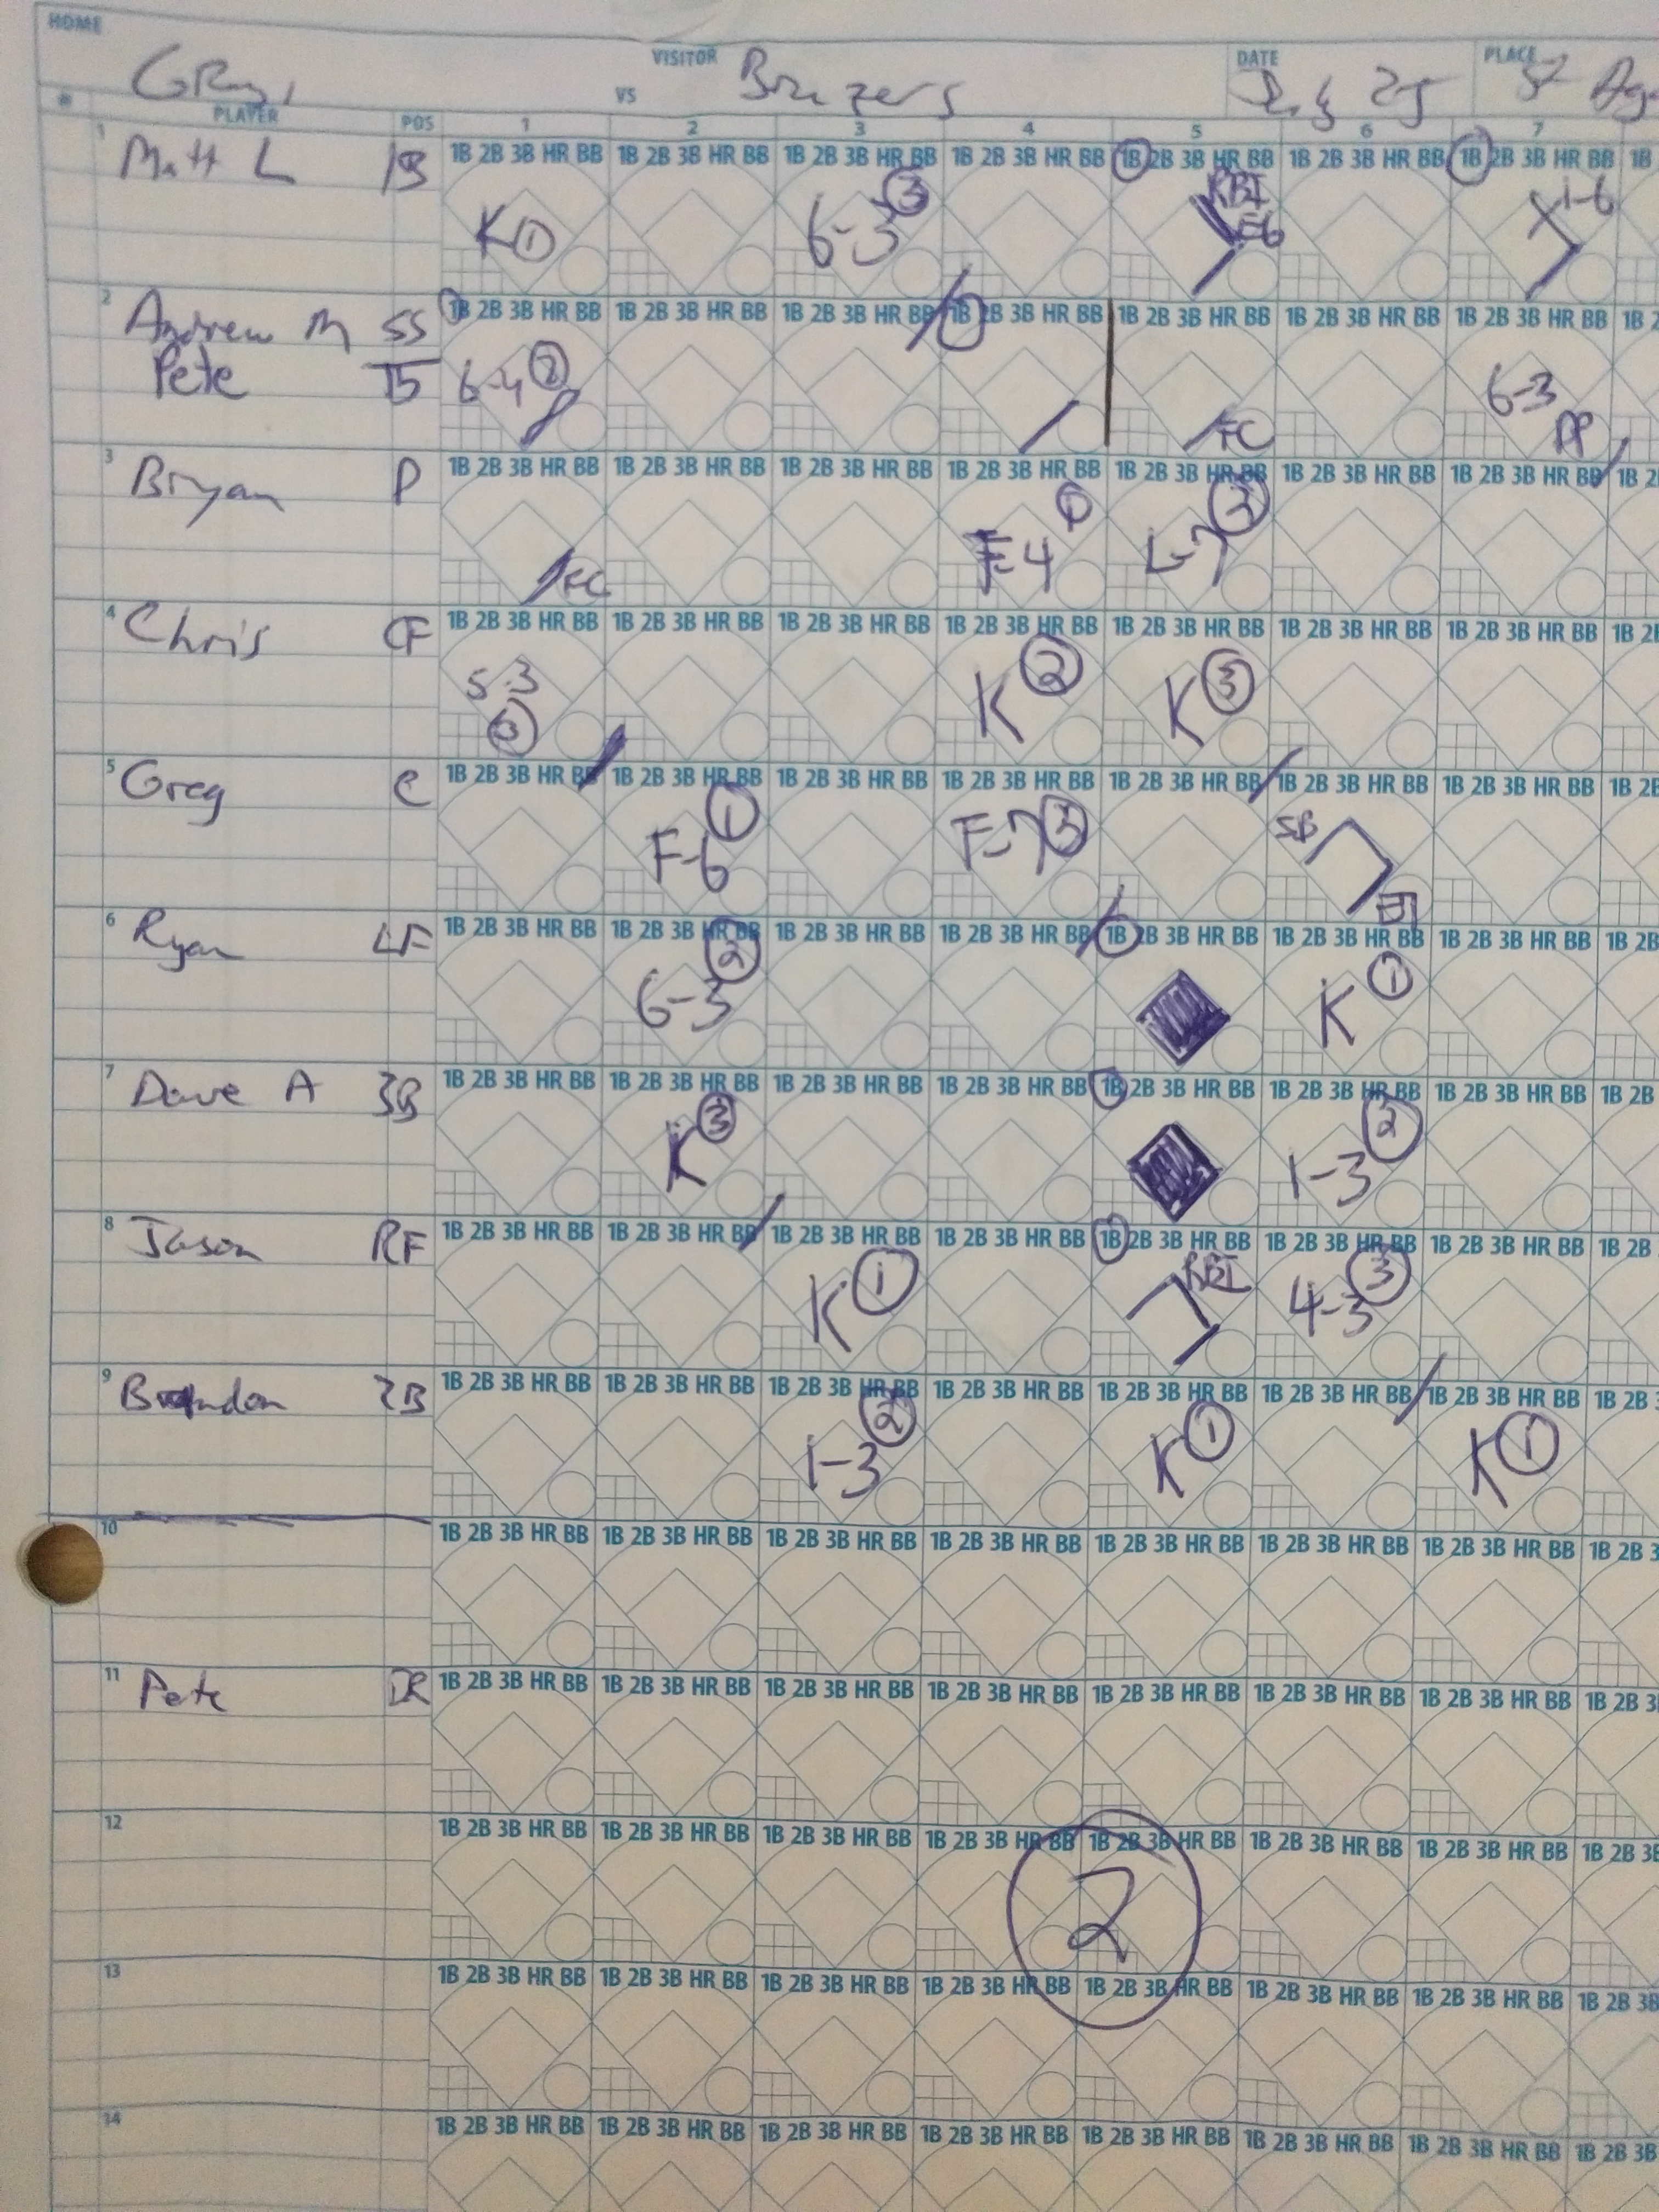 HOME VISITOR DATE PLACE
Grays vs Brazers 25 St
# PLAYER POS 1 2 3 4 5 6 7
1 Matt L 1B 1B 2B 3B HR BB 1B 2B 3B HR BB 1B 2B 3B HR BB 1B 2B 3B HR BB 1B 2B 3B HR BB 1B 2B 3B HR BB 1B 2B 3B HR BB 1B
K 1 6-3 3 RBI E6 1-6
2 Andrew M SS 1B 2B 3B HR BB 1B 2B 3B HR BB 1B 2B 3B HR BB 1B 2B 3B HR BB 1B 2B 3B HR BB 1B 2B 3B HR BB 1B 2B 3B HR BB 1B 2
Pete 6-4 2 FC 6-3 DP
3 Bryan P 1B 2B 3B HR BB 1B 2B 3B HR BB 1B 2B 3B HR BB 1B 2B 3B HR BB 1B 2B 3B HR BB 1B 2B 3B HR BB 1B 2B 3B HR BB 1B 2
FC F-4 1 L-7 3
4 Chris CF 1B 2B 3B HR BB 1B 2B 3B HR BB 1B 2B 3B HR BB 1B 2B 3B HR BB 1B 2B 3B HR BB 1B 2B 3B HR BB 1B 2B 3B HR BB 1B 2
5-3 3 K 2 K 3
5 Greg C 1B 2B 3B HR BB 1B 2B 3B HR BB 1B 2B 3B HR BB 1B 2B 3B HR BB 1B 2B 3B HR BB 1B 2B 3B HR BB 1B 2B 3B HR BB 1B 2B
F-6 1 F-7 3 SB
6 Ryan LF 1B 2B 3B HR BB 1B 2B 3B HR BB 1B 2B 3B HR BB 1B 2B 3B HR BB 1B 2B 3B HR BB 1B 2B 3B HR BB 1B 2B 3B HR BB 1B 2B
6-3 2 K 1
7 Dave A 3B 1B 2B 3B HR BB 1B 2B 3B HR BB 1B 2B 3B HR BB 1B 2B 3B HR BB 1B 2B 3B HR BB 1B 2B 3B HR BB 1B 2B 3B HR BB 1B 2B
K 3 1-3 2
8 Jason RF 1B 2B 3B HR BB 1B 2B 3B HR BB 1B 2B 3B HR BB 1B 2B 3B HR BB 1B 2B 3B HR BB 1B 2B 3B HR BB 1B 2B 3B HR BB 1B 2B
K 1 RBI 4-3 3
9 Brandon 2B 1B 2B 3B HR BB 1B 2B 3B HR BB 1B 2B 3B HR BB 1B 2B 3B HR BB 1B 2B 3B HR BB 1B 2B 3B HR BB 1B 2B 3B HR BB 1B 2B 3
1-3 2 K 1 K 1
10 1B 2B 3B HR BB 1B 2B 3B HR BB 1B 2B 3B HR BB 1B 2B 3B HR BB 1B 2B 3B HR BB 1B 2B 3B HR BB 1B 2B 3B HR BB 1B 2B 3
11 Pete 1B 2B 3B HR BB 1B 2B 3B HR BB 1B 2B 3B HR BB 1B 2B 3B HR BB 1B 2B 3B HR BB 1B 2B 3B HR BB 1B 2B 3B HR BB 1B 2B 3
12 1B 2B 3B HR BB 1B 2B 3B HR BB 1B 2B 3B HR BB 1B 2B 3B HR BB 1B 2B 3B HR BB 1B 2B 3B HR BB 1B 2B 3B HR BB 1B 2B 3B
2
13 1B 2B 3B HR BB 1B 2B 3B HR BB 1B 2B 3B HR BB 1B 2B 3B HR BB 1B 2B 3B HR BB 1B 2B 3B HR BB 1B 2B 3B HR BB 1B 2B 3B
14 1B 2B 3B HR BB 1B 2B 3B HR BB 1B 2B 3B HR BB 1B 2B 3B HR BB 1B 2B 3B HR BB 1B 2B 3B HR BB 1B 2B 3B HR BB 1B 2B 3B